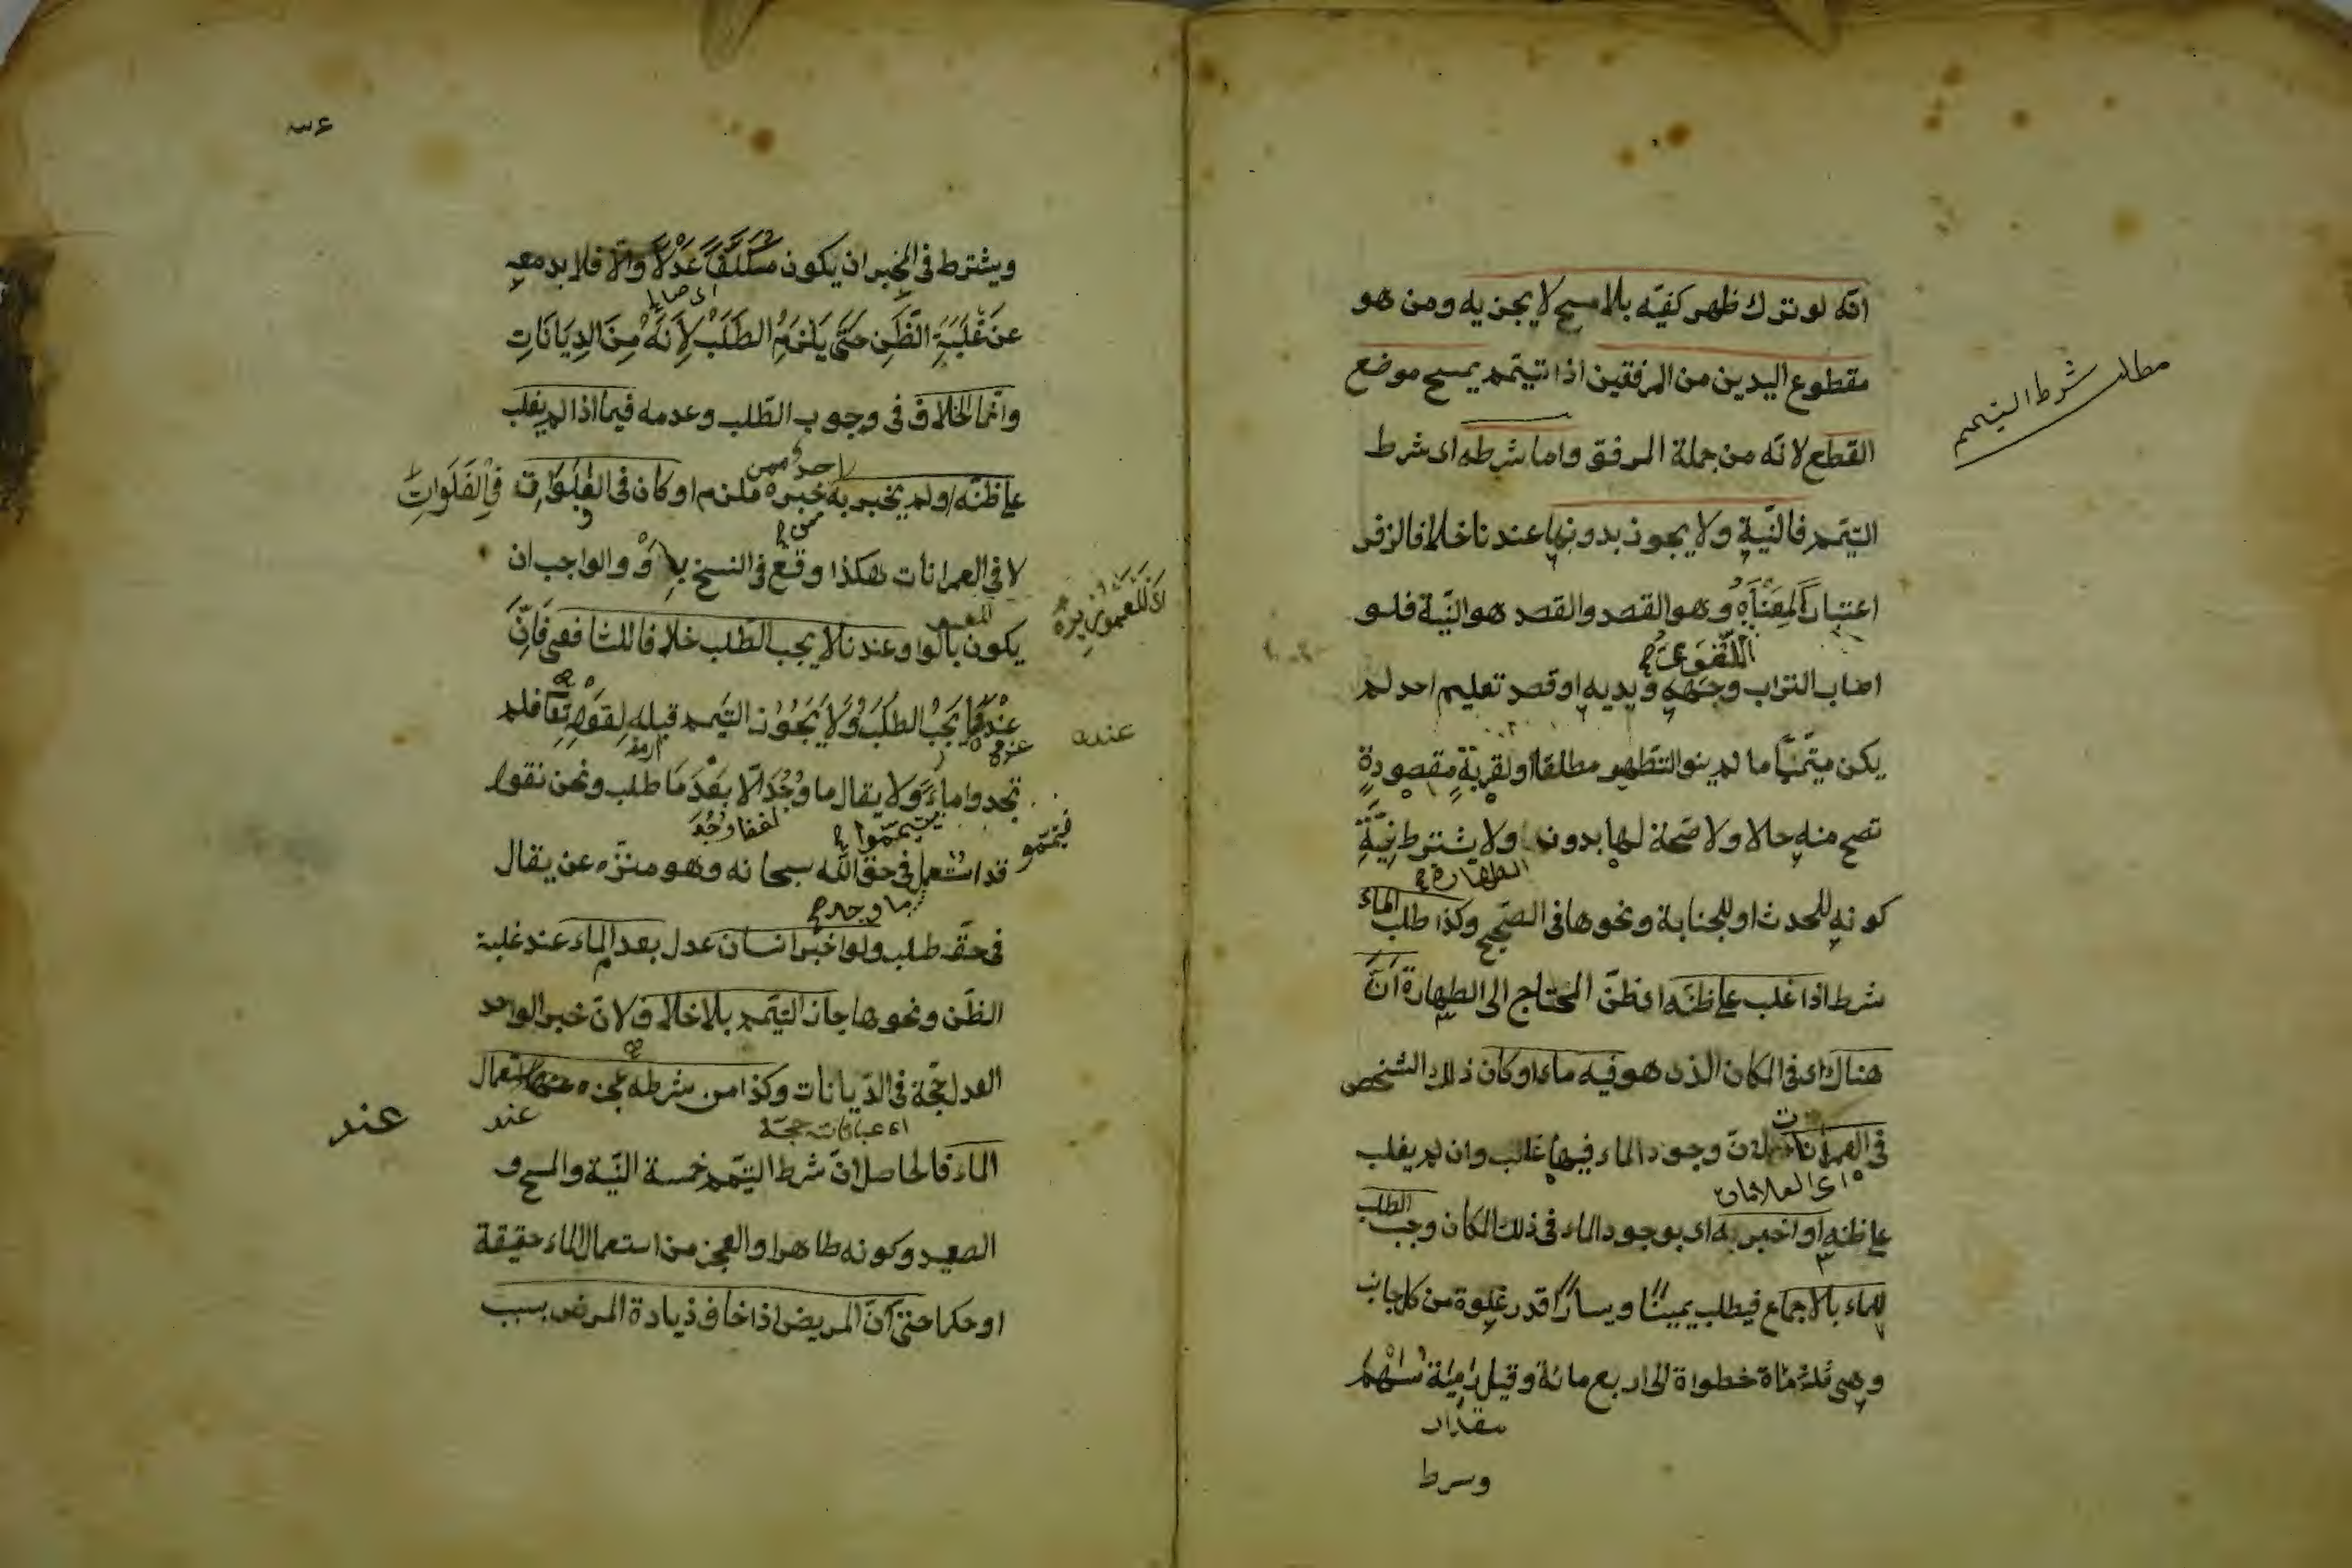 انّه لو ترك ظهر كفيّه بلا مسح لا يجزيه ومن هو
مقطوع اليدين من المرفقين اذا تيمّم يمسح موضع
القطع لانّه من جملة المرفق واما شرطه اى شرط
مطلب شرط التيمم
التيمّم فالنّية ولا يجوز بدونها عندنا خلافا لزفر
اعتبارًا لمعناه وهو القصد والقصد هو النّية فلو
اصاب التراب وجهه ويديه او قصد تعليم احد لم
يكن متيمّمًا ما لم ينو التطهر مطلقا او لقربة مقصودة
تصح منه حالا ولا صّحة لها بدون ولا يشترط نيّة
الطهارة
كونه للحدث او للجنابة ونحوها فى الصّحيح وكذا طلب الماء
شرط اذا غلب على ظنّه اى ظنّ المحتاج الى الطهارة انّ
هناك اى فى المكان الذى هو فيه ماء او كان ذلك الشخص
فى العمرانات لانّ وجود الماء فيها غالب وان لم يغلب
اى العلامات
على ظنه او اخبر به اى بوجود الماء فى ذلك المكان وجب الطلب
للماء بالاجماع فيطلب يمينًا ويسارًا قدر غلوة من كل جانب
وهى ثلثماة خطواة الى اربع مائة وقيل رمية سهم
مقدار
وسرط
ويشترط فى المخبر ان يكون مكلفًا عدلًا والّا فلا بد معه
عن غلبة الظّن حتّى يلزم الطلب لانّه من الديانات
وانّما الخلاف فى وجوب الطّلب وعدمه فيما اذا لم يغلب
على ظنّه او لم يخبر به مخبر او كان فى الفلوات فى الفلوات
لا فى العمرانات هكذا وقع فى النسخ بلا وْ والواجب ان
يكون بالواو وعندنا لا يجب الطّلب خلافا للشافعى فانّ
عنده يجب الطلب ولا يجوز التيمم قبله لقوله تعا فلم
عنده
تجدوا ماءً ولا يقال ما وجد الّا بعد ما طلب ونحن نقول
فيتمّمو
قد استعمل فى حق الله سبحانه وهو منزّه عن يقال
فى حقّه طلب ولو اخبر انسان عدل بعد الماء عند غلبة
الظّن ونحوها جاز التيّمم بلا خلاف لانّ خبر الواحد
العدل حجّة فى الدّيانات وكذا من شرطه عجزه عن استعمال
عند
عند
الماء فالحاصل انّ شرط التيّمم خمسة النيّة والمسح و
الصعيد وكونه طاهرا والعجز من استعمال الماء حقيقة
او حكما حتى انّ المريض اذا خاف زيادة المرض بسبب